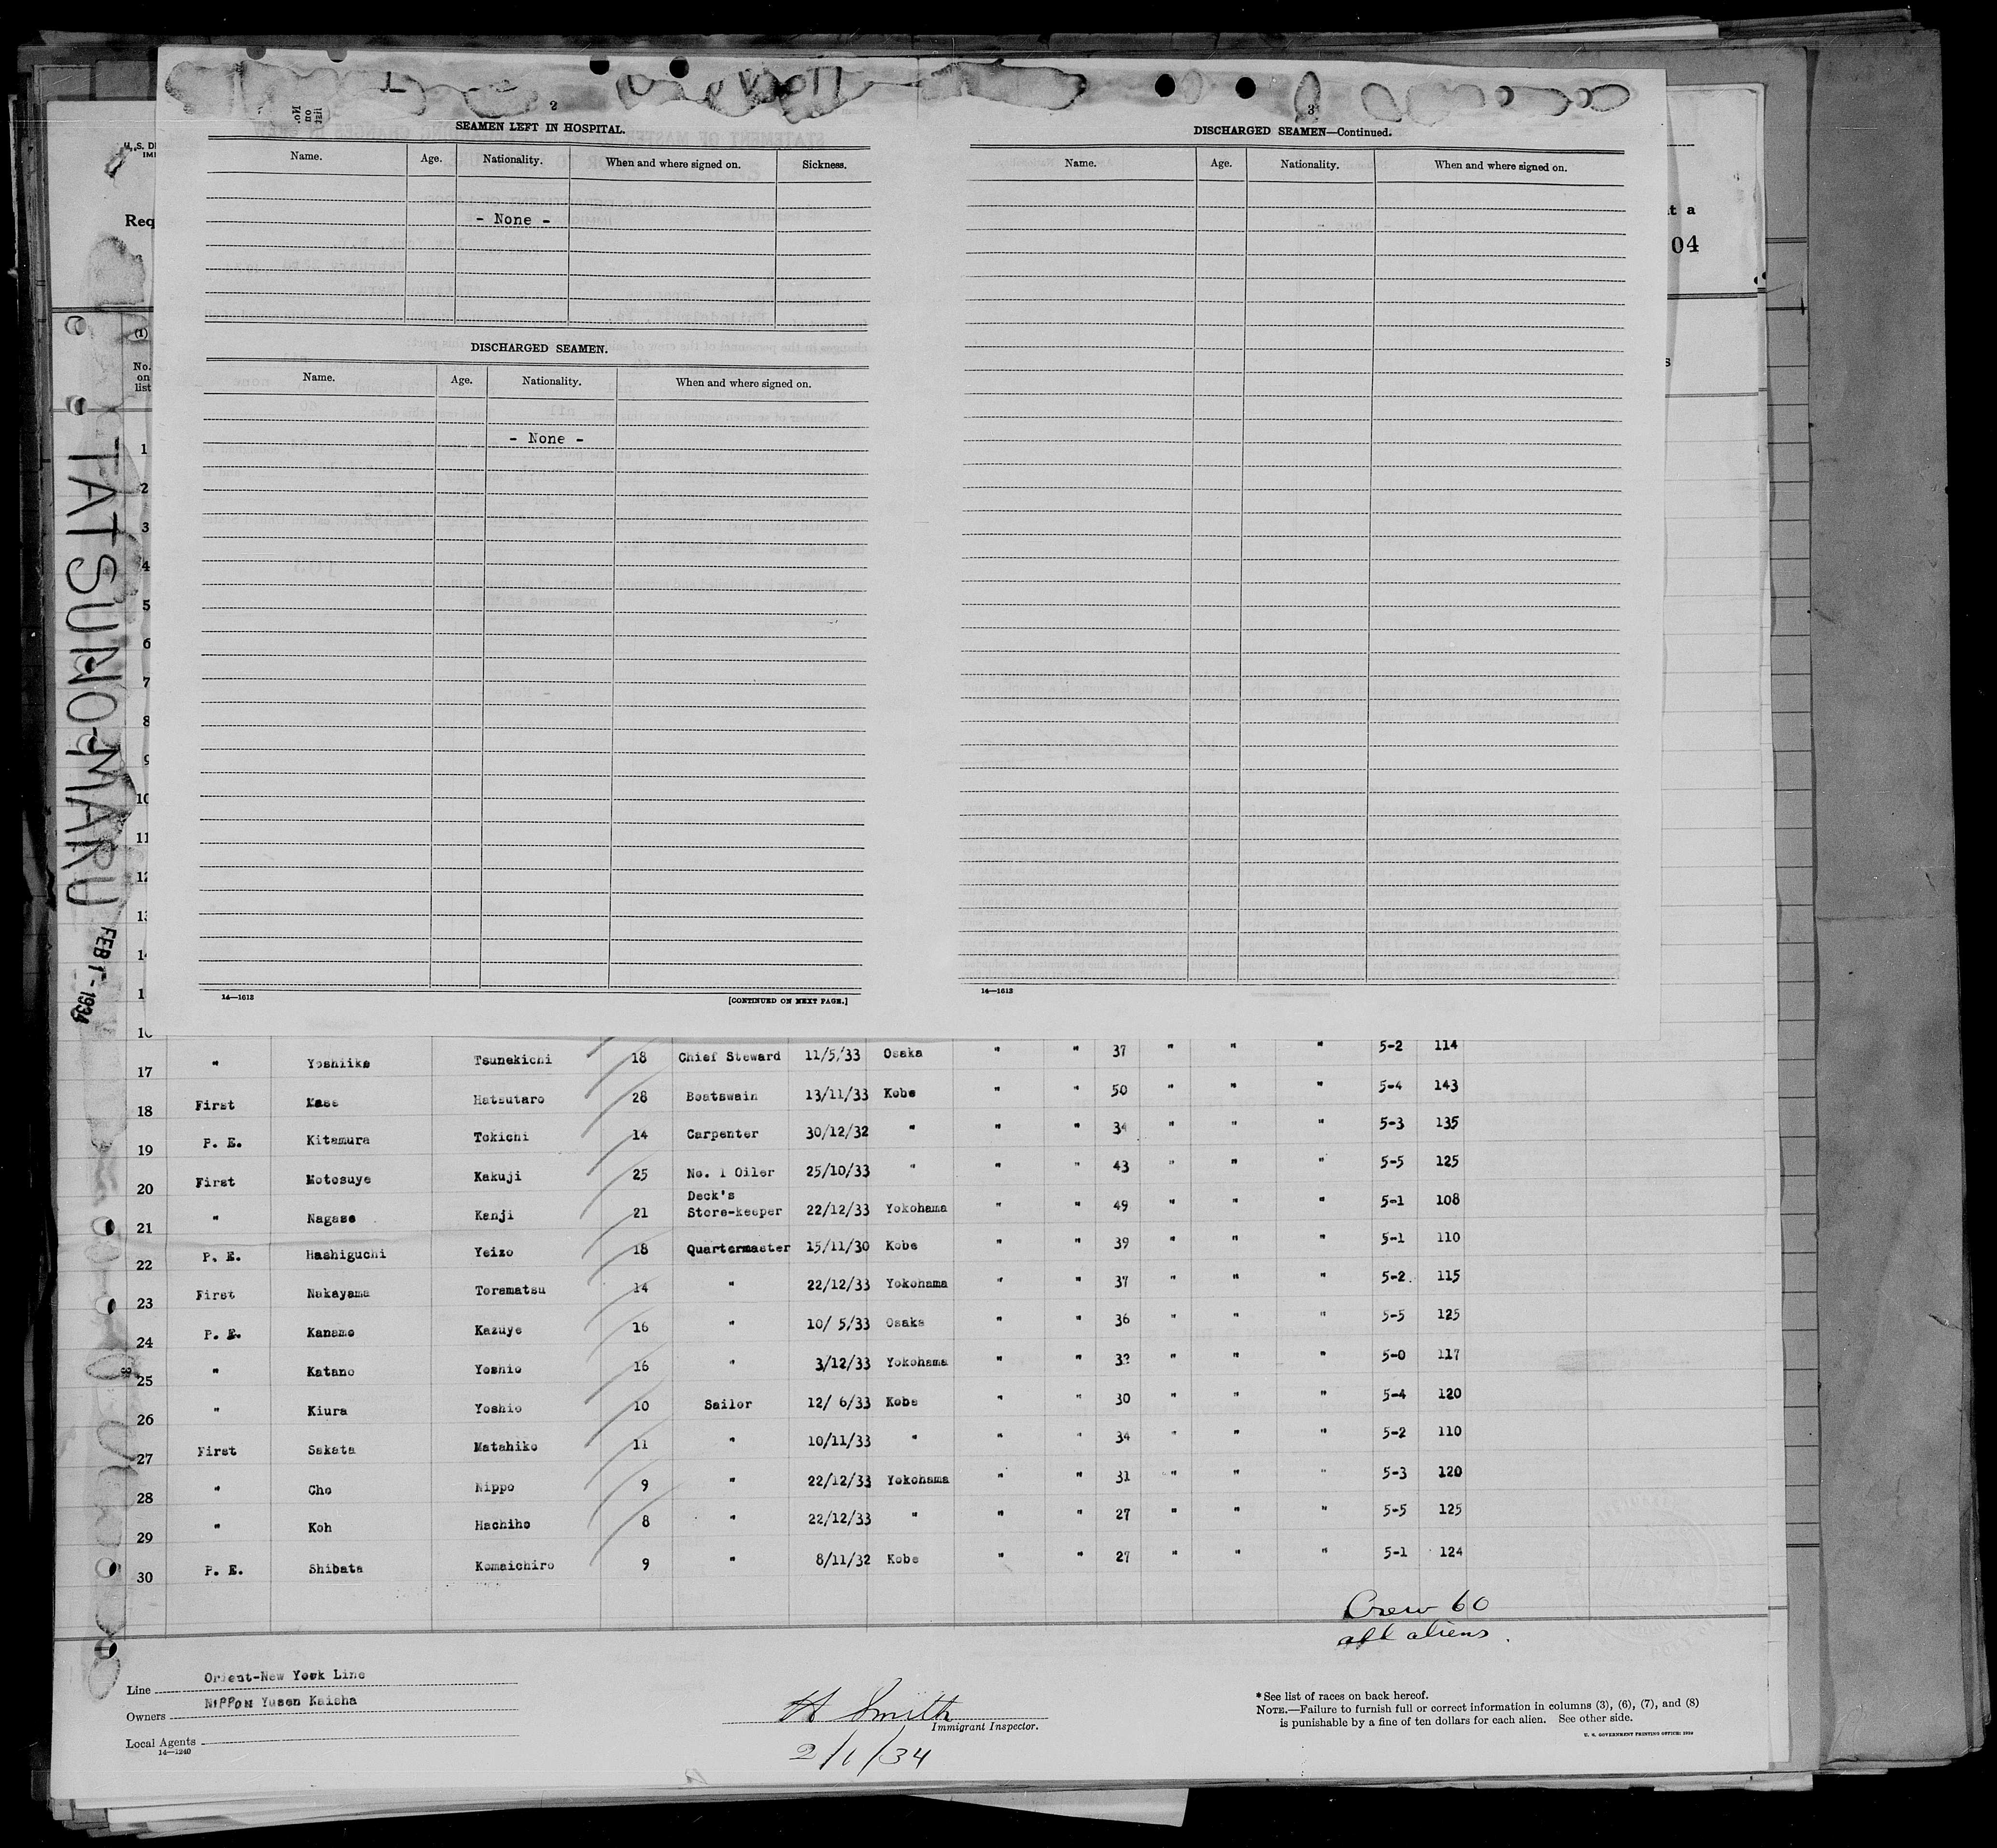 2
SEAMEN LEFT IN HOSPITAL.
Name. Age. Nationality. When and where signed on. Sickness.
- None -
DISCHARGED SEAMEN.
Name. Age. Nationality. When and where signed on.
- None -
14—1613
[CONTINUED ON NEXT PAGE.]
3
DISCHARGED SEAMEN—Continued.
Name. Age. Nationality. When and where signed on.
14—1613
Req
t a
04
(1)
No. on list
1
2
3
4
5
6
7
8
9
10
11
12
TATSUNO MARU
FEB 1 - 1934
17 " Yoshiike Tsunekichi 18 Chief Steward 11/5/'33 Osaka " " 37 " " " 5-2 114
18 First Mase Hatsutaro 28 Boatswain 13/11/33 Kobe " " 50 " " " 5-4 143
19 P. E. Kitamura Tokichi 14 Carpenter 30/12/32 " " " 34 " " " 5-3 135
20 First Motosuye Kakuji 25 No. 1 Oiler 25/10/33 " " " 43 " " " 5-5 125
21 " Nagase Kenji 21 Deck's Store-keeper 22/12/33 Yokohama " " 49 " " " 5-1 108
22 P. E. Hashiguchi Yeizo 18 Quartermaster 15/11/30 Kobe " " 39 " " " 5-1 110
23 First Nakayama Toramatsu 14 " 22/12/33 Yokohama " " 37 " " " 5-2 115
24 P. E. Kanamo Kazuye 16 " 10/ 5/33 Osaka " " 36 " " " 5-5 125
25 " Katano Yoshio 16 " 3/12/33 Yokohama " " " " " 5-0 117
26 " Kiura Yoshio 10 Sailor 12/ 6/33 Kobe " " 30 " " " 5-4 120
27 First Sakata Matahiko 11 " 10/11/33 " " " 34 " " " 5-2 110
28 " Cho Nippo 9 " 22/12/33 Yokohama " " 31 " " " 5-3 120
29 " Koh Hachiho 8 " 22/12/33 " " " 27 " " " 5-5 125
30 P. E. Shibata Komaichiro 9 " 8/11/32 Kobe " " 27 " " " 5-1 124
Crew 60
all aliens.
Line Orient-New York Line
Owners NIPPON Yusen Kaisha
Local Agents
14—1240
H Smith
Immigrant Inspector.
2/1/34
* See list of races on back hereof.
NOTE.—Failure to furnish full or correct information in columns (3), (6), (7), and (8)
is punishable by a fine of ten dollars for each alien. See other side.
U. S. GOVERNMENT PRINTING OFFICE: 1929